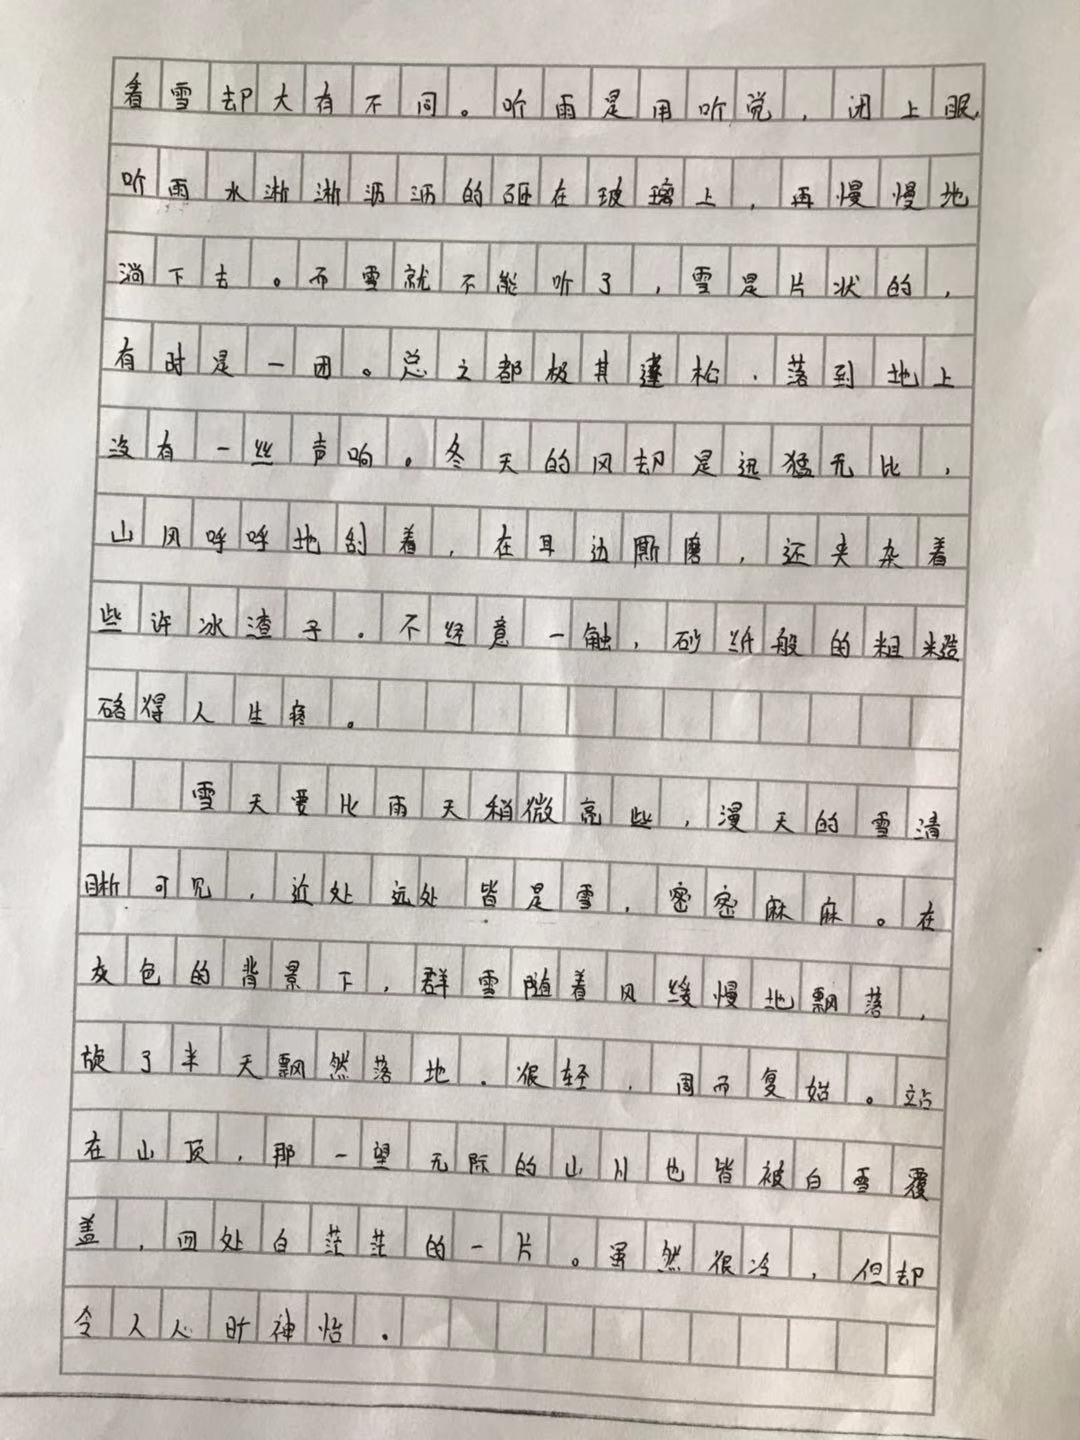 看雪却大有不同。听雨是用听觉，闭上眼，
听雨水淅淅沥沥的砸在玻璃上，再慢慢地
淌下去。而雪就不能听了，雪是片状的，
有时是一团。总之都极其蓬松，落到地上
没有一丝声响。冬天的风却是迅猛无比，
山风呼呼地刮着，在耳边厮磨，还夹杂着
些许冰渣子。不经意一触，砂纸般的粗糙
硌得人生疼。
雪天要比雨天稍微亮些，漫天的雪清
晰可见，近处远处皆是雪，密密麻麻。在
灰色的背景下，群雪随着风缓慢地飘落，
旋了半天飘然落地。很轻，周而复始。站
在山顶，那一望无际的山川也皆被白雪覆
盖，四处白茫茫的一片。虽然很冷，但却
令人心旷神怡。